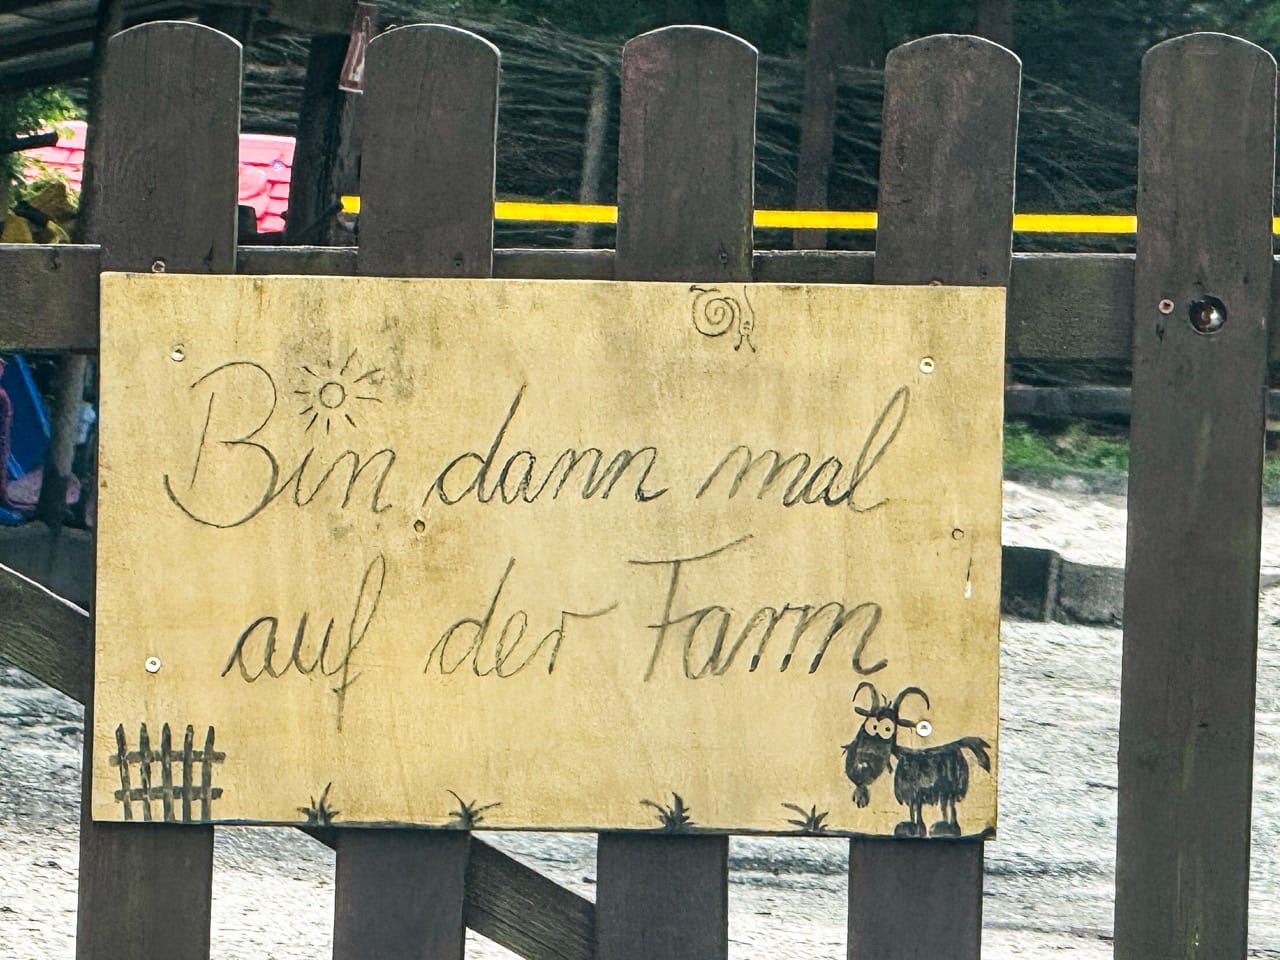 Bin dann mal
auf der Farm